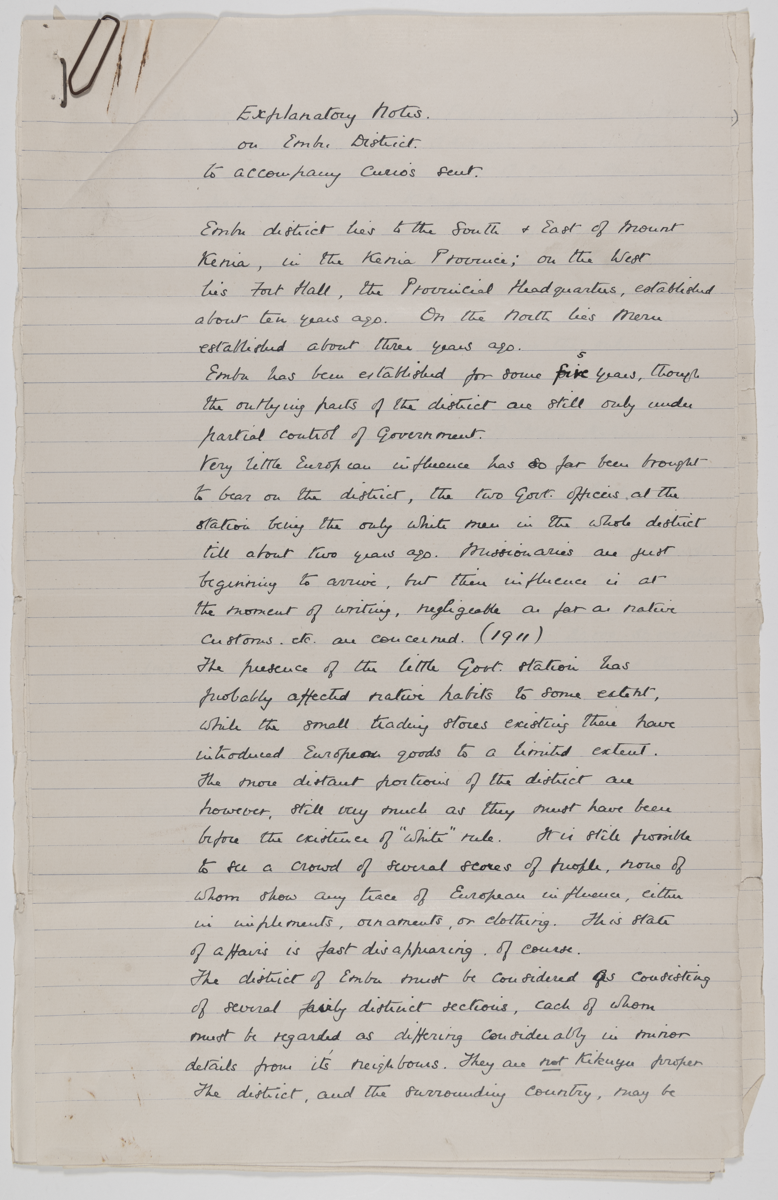 Explanatory Notes.
on Embu District.
to accompany Curios sent.
Embu district lies to the South & East of Mount
Kenia, in the Kenia Province; on the West
lies Fort Hall, the Provincial Headquarters, established
about ten years ago. On the North lies Meru
established about three years ago.
Embu has been established for some five 5 years, though
the outlying parts of the district are still only under
partial control of Government.
Very little European influence has so far been brought
to bear on the district, the two Govt. officers at the
station being the only white men in the whole district
till about two years ago. Missionaries are just
beginning to arrive, but their influence is at
the moment of writing, negligeable as far as native
customs. etc. are concerned. (1911)
The presence of the little Govt. station has
probably affected native habits to some extent,
while the small trading stores existing there have
introduced European goods to a limited extent.
The more distant portions of the district are
however, still very much as they must have been
before the existence of "white" rule. It is still possible
to see a crowd of several scores of people, none of
whom show any trace of European influence, either
in implements, ornaments, or clothing. This state
of affairs is fast disappearing. of course.
The district of Embu must be considered as consisting
of several fairly distinct sections, each of whom
must be regarded as differing considerably in minor
details from it's neighbours. They are not Kikuyu proper
The district, and the surrounding country, may be